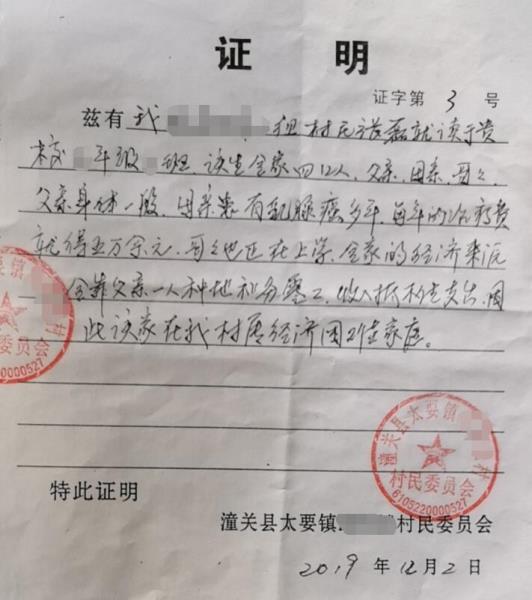 证 明
证字第 3 号
兹有 我 组村民 就读于贵
校 年级 班 该生全家四口人，父亲、母亲、哥哥，
父亲身体一般，母亲患有乳腺癌多年，每年的治疗费
就得五万余元，哥哥也正在上学，全家的经济来源
全靠父亲一人种地和务零工，收入抵不住支出，因
此该家在我村属经济困难家庭。
潼关县太要镇 村
村民委员会
6105220000527
要镇 村
委员会
20000527
特此证明
潼关县太要镇 村民委员会
2019 年 12 月 2 日